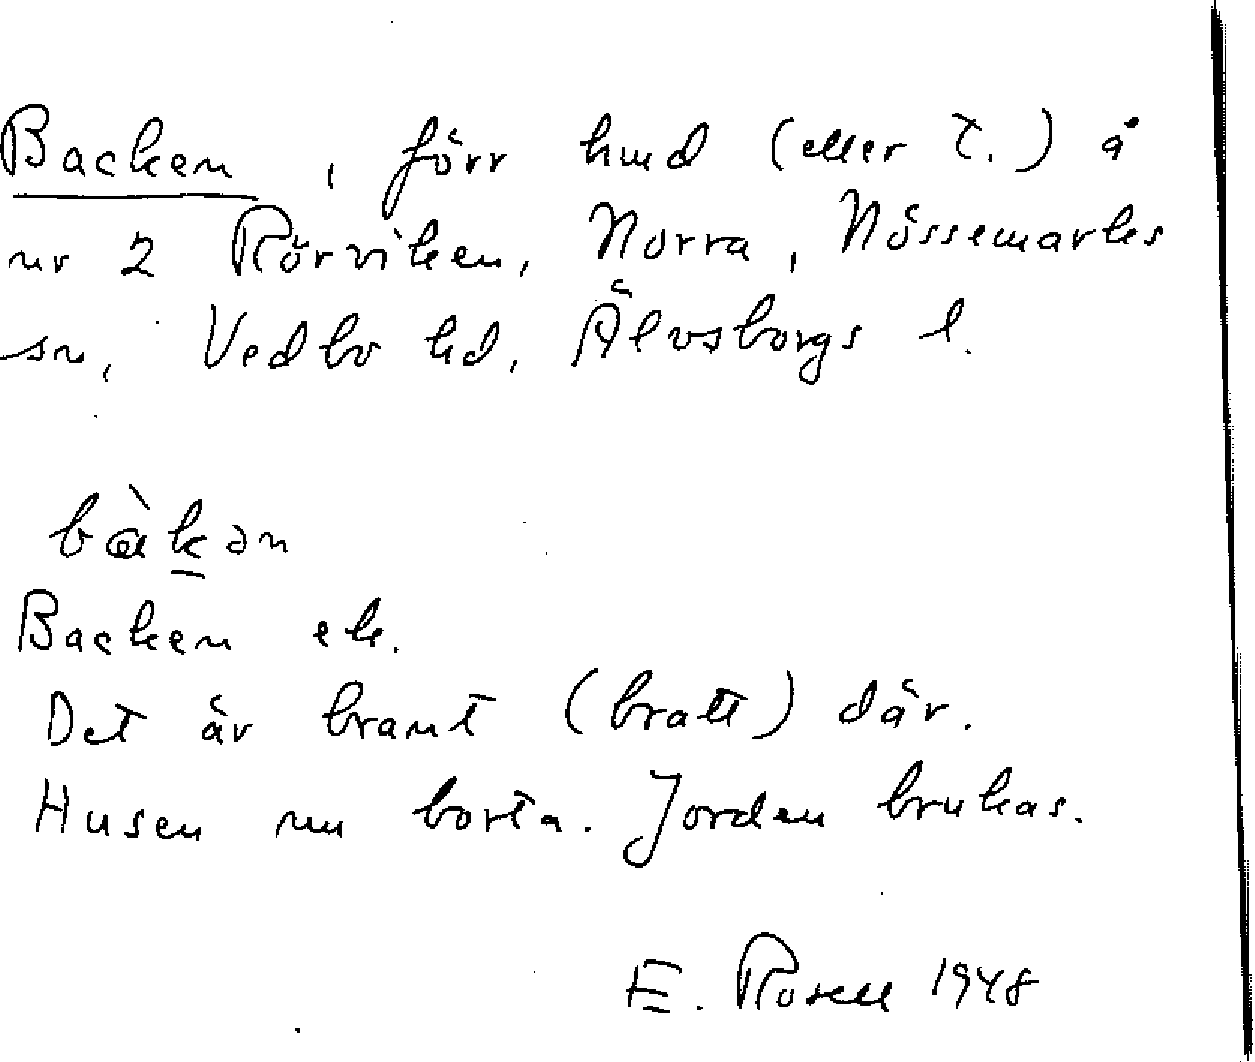 Backen, förr hmd (eller t.) å
nr 2 Rörviken, Norra, Nössemarks
sn, Vedbo hd, Älvsborgs l.
bàkən
Backen ek.
Det är brant (bratt) där.
Husen nu borta. Jorden brukas.
E. Rosell 1948